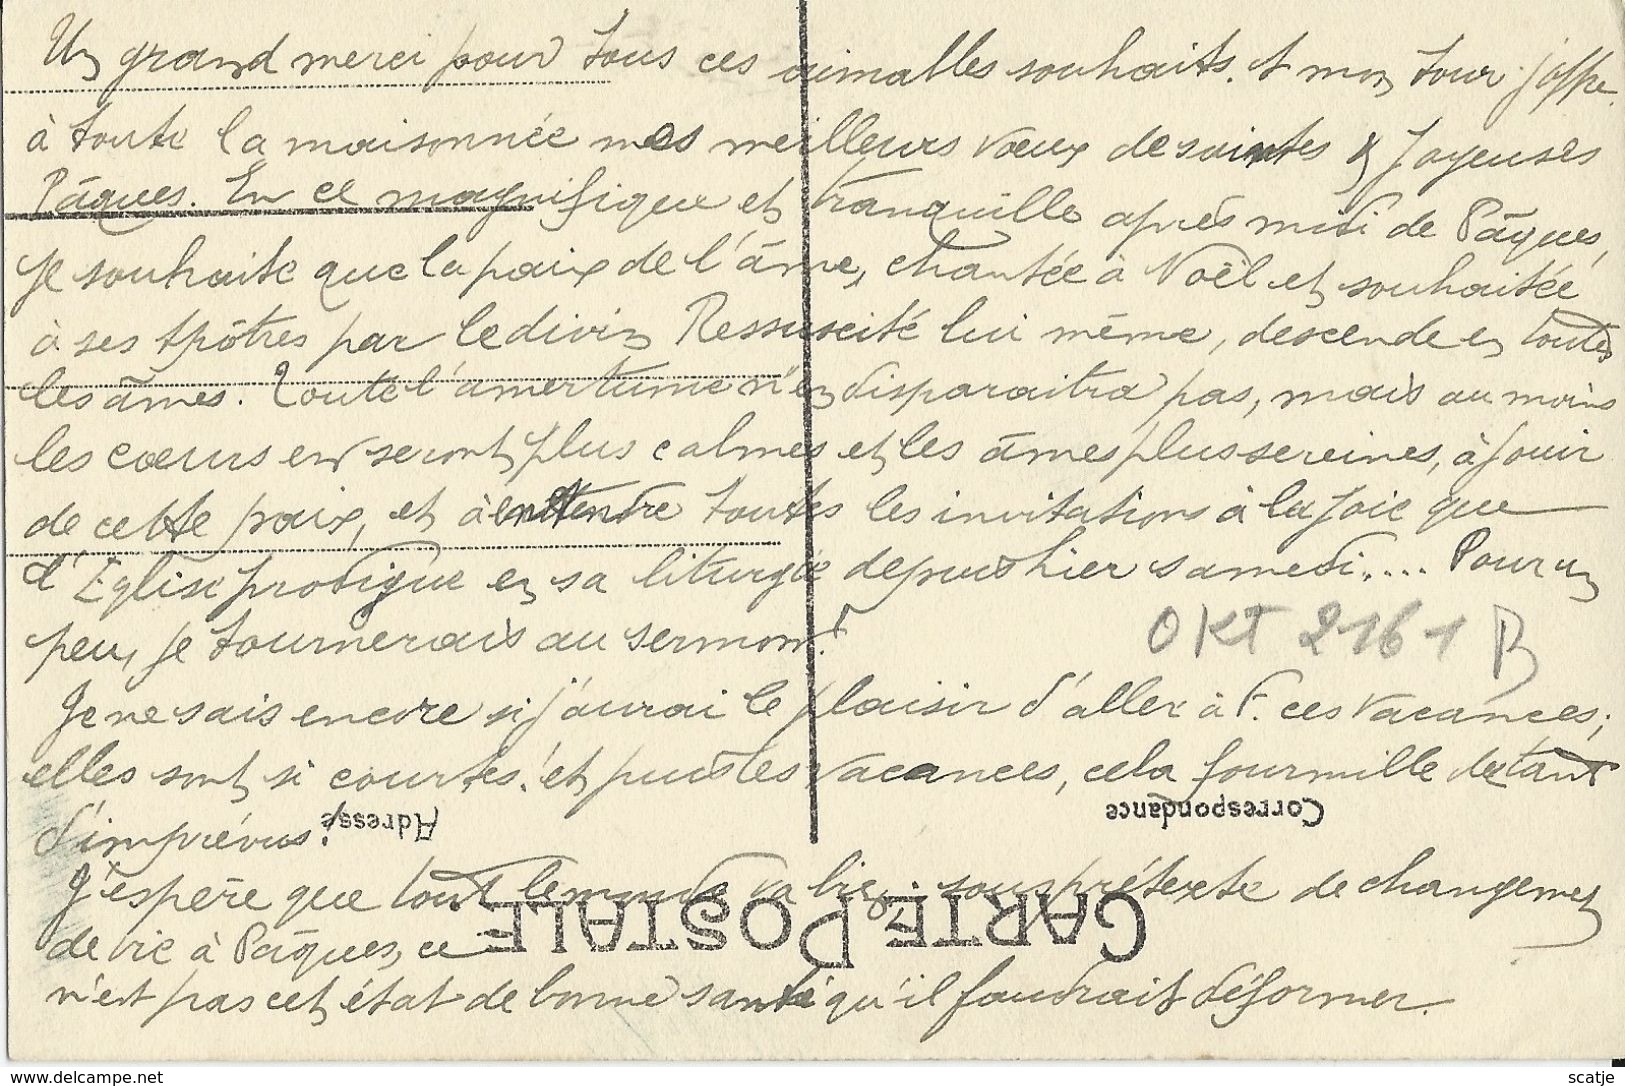 Un grand merci pour tous ces aimables souhaits. A mon tour j'offre
à toute la maisonnée mes meilleurs vœux de saintes & Joyeuses
Pâques. En ce magnifique et tranquille après midi de Pâques,
je souhaite que la paix de l'âme, chantée à Noël et souhaitée
à ses Apôtres par le divin Ressuscité lui même, descende en toutes
les âmes. Toute l'amertume n'en disparaitra pas, mais au moins
les cœurs en seront plus calmes et les âmes plus sereines, à jouir
de cette paix, et à entendre toutes les invitations à la Joie que
l'Eglise prodigue en sa liturgie depuis hier samedi.... Pour un
peu, je tournerais au sermon!
OKT 2161 B
Je ne sais encore si j'aurai le plaisir d'aller à F. ces vacances;
elles sont si courtes! et puis les vacances, cela fourmille de tant
d'imprévus!
Adresse
Correspondance
J'espère que tout le monde va bien. sous prétexte de changement
CARTE POSTALE
de vie à Pâques, ce
n'est pas cet état de bonne santé qu'il faudrait déformer.
www.delcampe.net
scatje